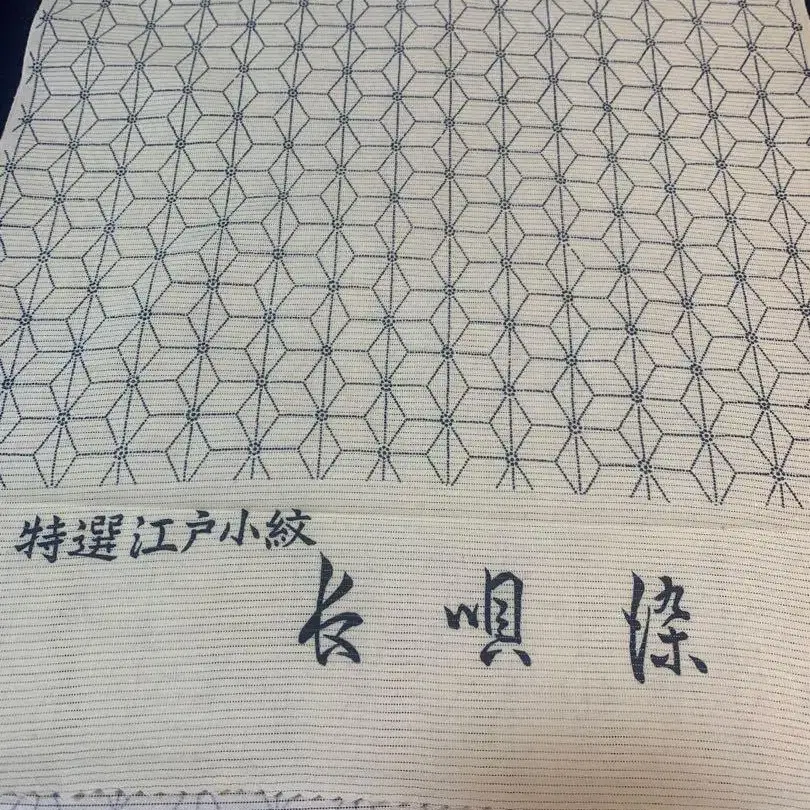 特選江戸小紋
長唄染